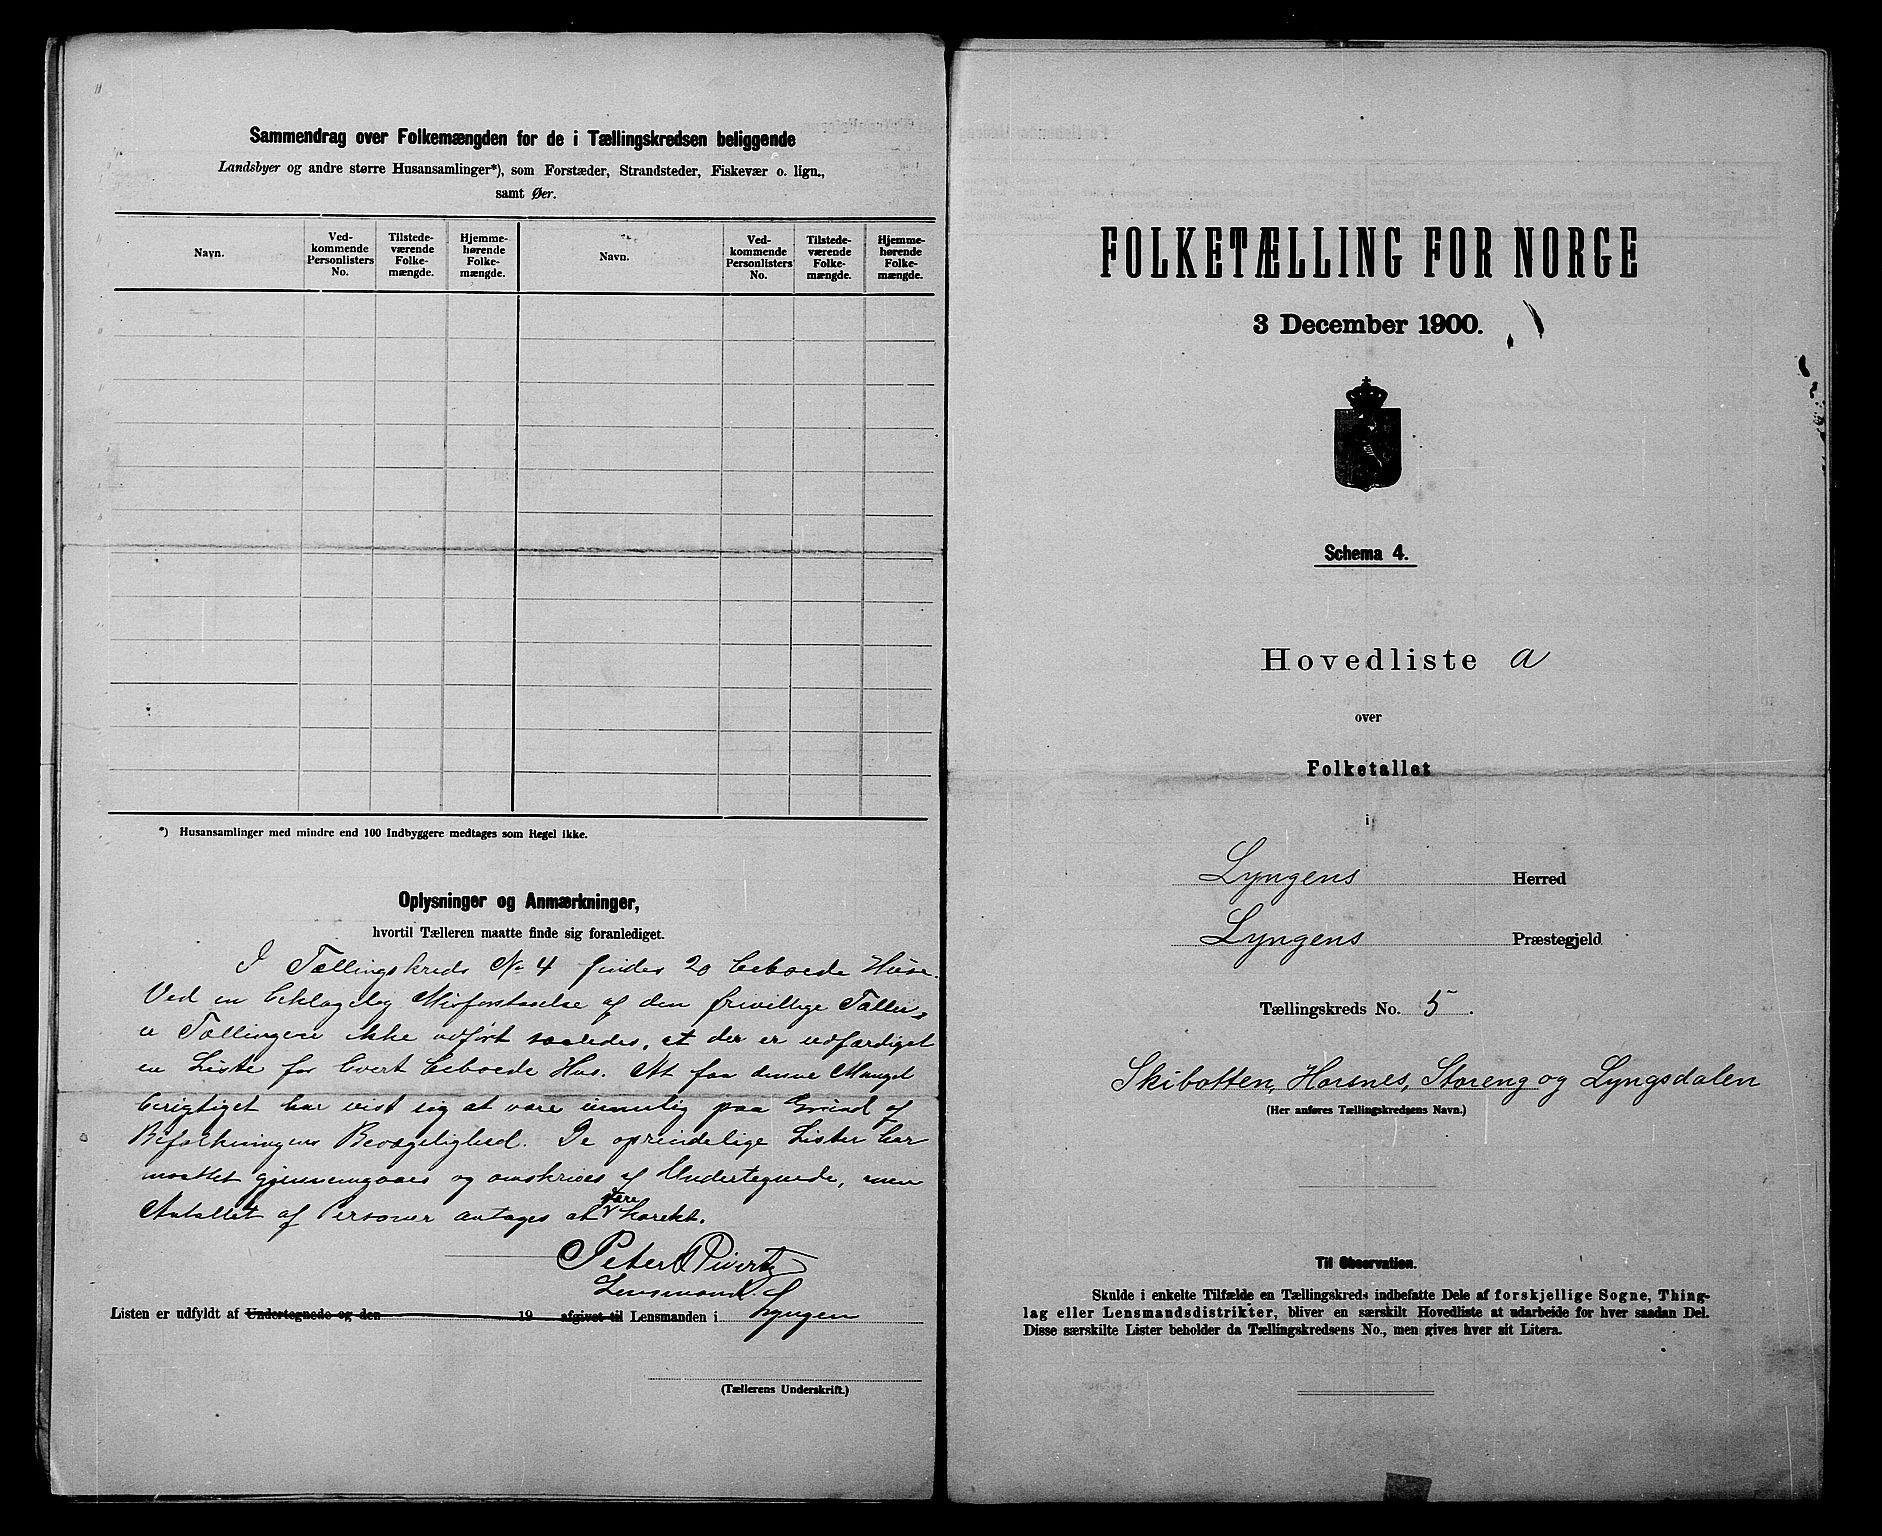 Sammendrag over Folkemængden for de i Tællingskredsen beliggende
Landsbyer og andre større Husansamlinger*), som Forstæder, Strandsteder, Fiskevær o. lign.,
samt Øer.
Navn. Ved-kommende Personlisters No. Tilstede-værende Folke-mængde. Hjemme-hørende Folke-mængde. Navn. Ved-kommende Personlisters No. Tilstede-værende Folke-mængde. Hjemme-hørende Folke-mængde.
*) Husansamlinger med mindre end 100 Indbyggere medtages som Regel ikke.
Oplysninger og Anmærkninger,
hvortil Tælleren maatte finde sig foranlediget.
I Tællingskreds No 4 findes 20 beboede Huse.
Ved en beklagelig Misforstaaelse af den frivillige Tæller
er Tællingen ikke udført saaledes, at der er udfærdiget
en Liste for hvert beboede Hus. At faa denne Mangel
berigtiget har vist sig at være umulig paa Grund af
Befolkningens Bevægelighed. De oprindelige Lister har
maattet gjennemgaaes og omskrives af Undertegnede, men
Antallet af Personer antages at være korekt.
Peter Pivertz
Lensmand.
Listen er udfyldt af Undertegnede og den 19 afgivet til Lensmanden i Lyngen
(Tællerens Underskrift.)
FOLKETÆLLING FOR NORGE
3 December 1900.
Schema 4.
Hovedliste a
over
Folketallet
i
Lyngens Herred
Lyngens Præstegjeld
Tællingskreds No. 5.
Skibotten, Horsnes, Storeng og Lyngsdalen
(Her anføres Tællingskredsens Navn.)
Til Observation.
Skulde i enkelte Tilfælde en Tællingskreds indbefatte Dele af forskjellige Sogne, Thing-
lag eller Lensmandsdistrikter, bliver en særskilt Hovedliste at udarbeide for hver saadan Del.
Disse særskilte Lister beholder da Tællingskredsens No., men gives hver sit Litera.